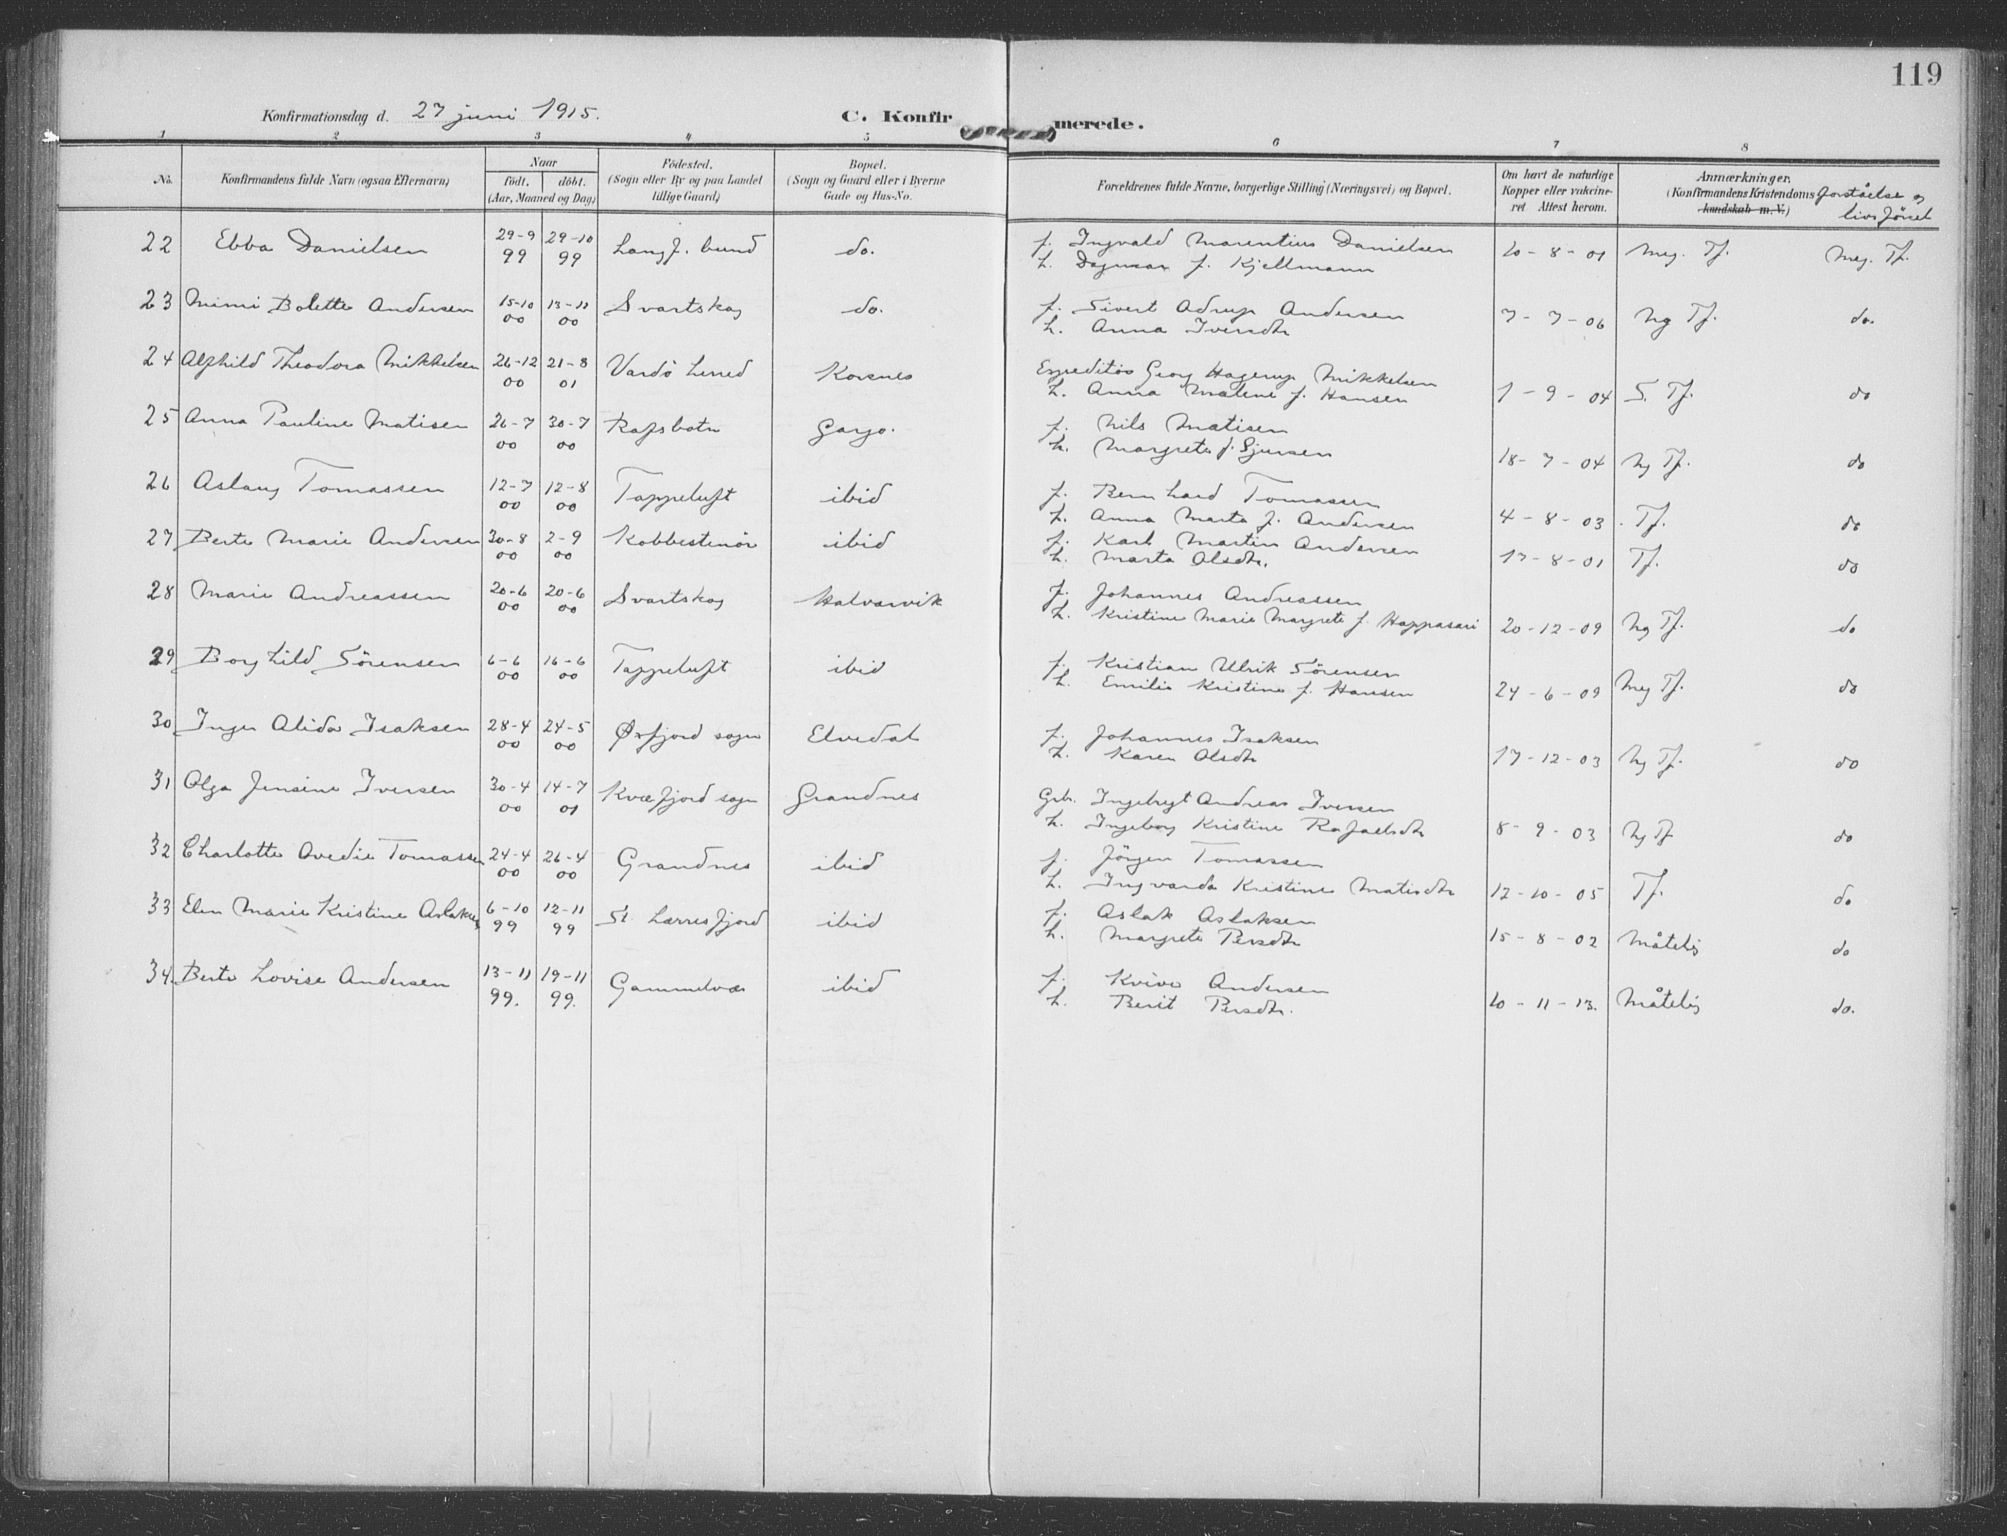 119
Konfirmationsdag d. 27 juni 1915.
C. Konfirmerede.
1 2 3 4 5 6 7 8
No.
Konfirmandens fulde Navn (ogsaa Efternavn)
Naar
födt. döbt.
(Aar, Maaned og Dag)
Födested.
(Sogn eller By og paa Landet tillige Gaard)
Bopæl.
(Sogn og Gaard eller i Byerne Gade og Hus-No.
Forældrenes fulde Navne, borgerlige Stilling (Næringsvei) og Bopæl.
Om havt de naturlige Kopper eller vakcineret Attest herom.
Anmærkninger.
(Konfirmandens Kristendoms kundskab m. V.) forståelse og livsförsel
22 Ebba Danielsen 29-9 99 29-10 99 Langf. bund do. f. Ingvald Marentius Danielsen
h. Dagmar f. Kjellmann 10-8-01 Meg. Tf. Meg. Tf.
23 Mimi Bolette Andersen 15-10 00 13-11 00 Svartskog do. f. Sivert Adrup Andersen
h. Anna Iversdtr 7-7-06 Ng Tf. do.
24 Alfhild Theodora Mikkelsen 26-12 00 21-8 01 Vardö Korsnes Expeditör Georg Hagerup Mikkelsen
h. Anna Malene f. Hansen 1-9-04 S. Tf. do
25 Anna Pauline Matisen 26-7 00 30-7 00 Rafsbotn Gargo. f. Nils Matisen
h. Margrete f. Sjursen 18-7-04 Ng Tf. do
26 Aslaug Tomassen 12-7 00 12-8 00 Tappeluft ibid f. Bernhard Tomassen
h. Anna Marta f. Andersen 4-8-03 Tf. do
27 Berte Marie Andersen 30-8 00 2-9 00 Kobbestenör ibid f. Karl Martin Andersen
h. Marta Olsdtr. 17-8-01 Tf. do
28 Marie Andreassen 20-6 00 20-6 00 Svartskog Halvarvik f. Johannes Andreassen
h. Kristine Marie Margrete f. Happasari 20-12-09 Ng Tf. do
29 Borghild Sörensen 6-6 00 16-6 00 Tappeluft ibid f. Kristian Ulrik Sörensen
h. Emilie Kristine f. Hansen 24-6-09 Meg Tf. do
30 Inger Alida Isaksen 28-4 00 24-5 00 Øxfjord sogn Elvedal f. Johannes Isaksen
h. Karen Olsdtr 17-12-03 Ng Tf. do
31 Olga Jensine Iversen 30-4 00 14-7 01 Kvæfjord sogn Grandnes Grb. Ingebrygt Andreas Iversen
h. Ingeborg Kristine Rafaelsdtr 8-9-03 Ng Tf do
32 Charlotte Avedie Tomassen 24-4 00 26-4 00 Grandnes ibid f. Jörgen Tomassen
h. Ingvarda Kristine Matisdtr 12-10-05 Tf. do
33 Elen Marie Kristine Aslaksen 6-10 99 12-11 99 St. Lærresfjord ibid f. Aslak Aslaksen
h. Margrete Persdtr 15-8-02 Måtelig do
34. Berte Lovise Andersen 13-11 99. 19-11 99. Gammelvær ibid f. Kvive Andersen
h. Berit Persdtr. 10-11-13. Måtelig do.